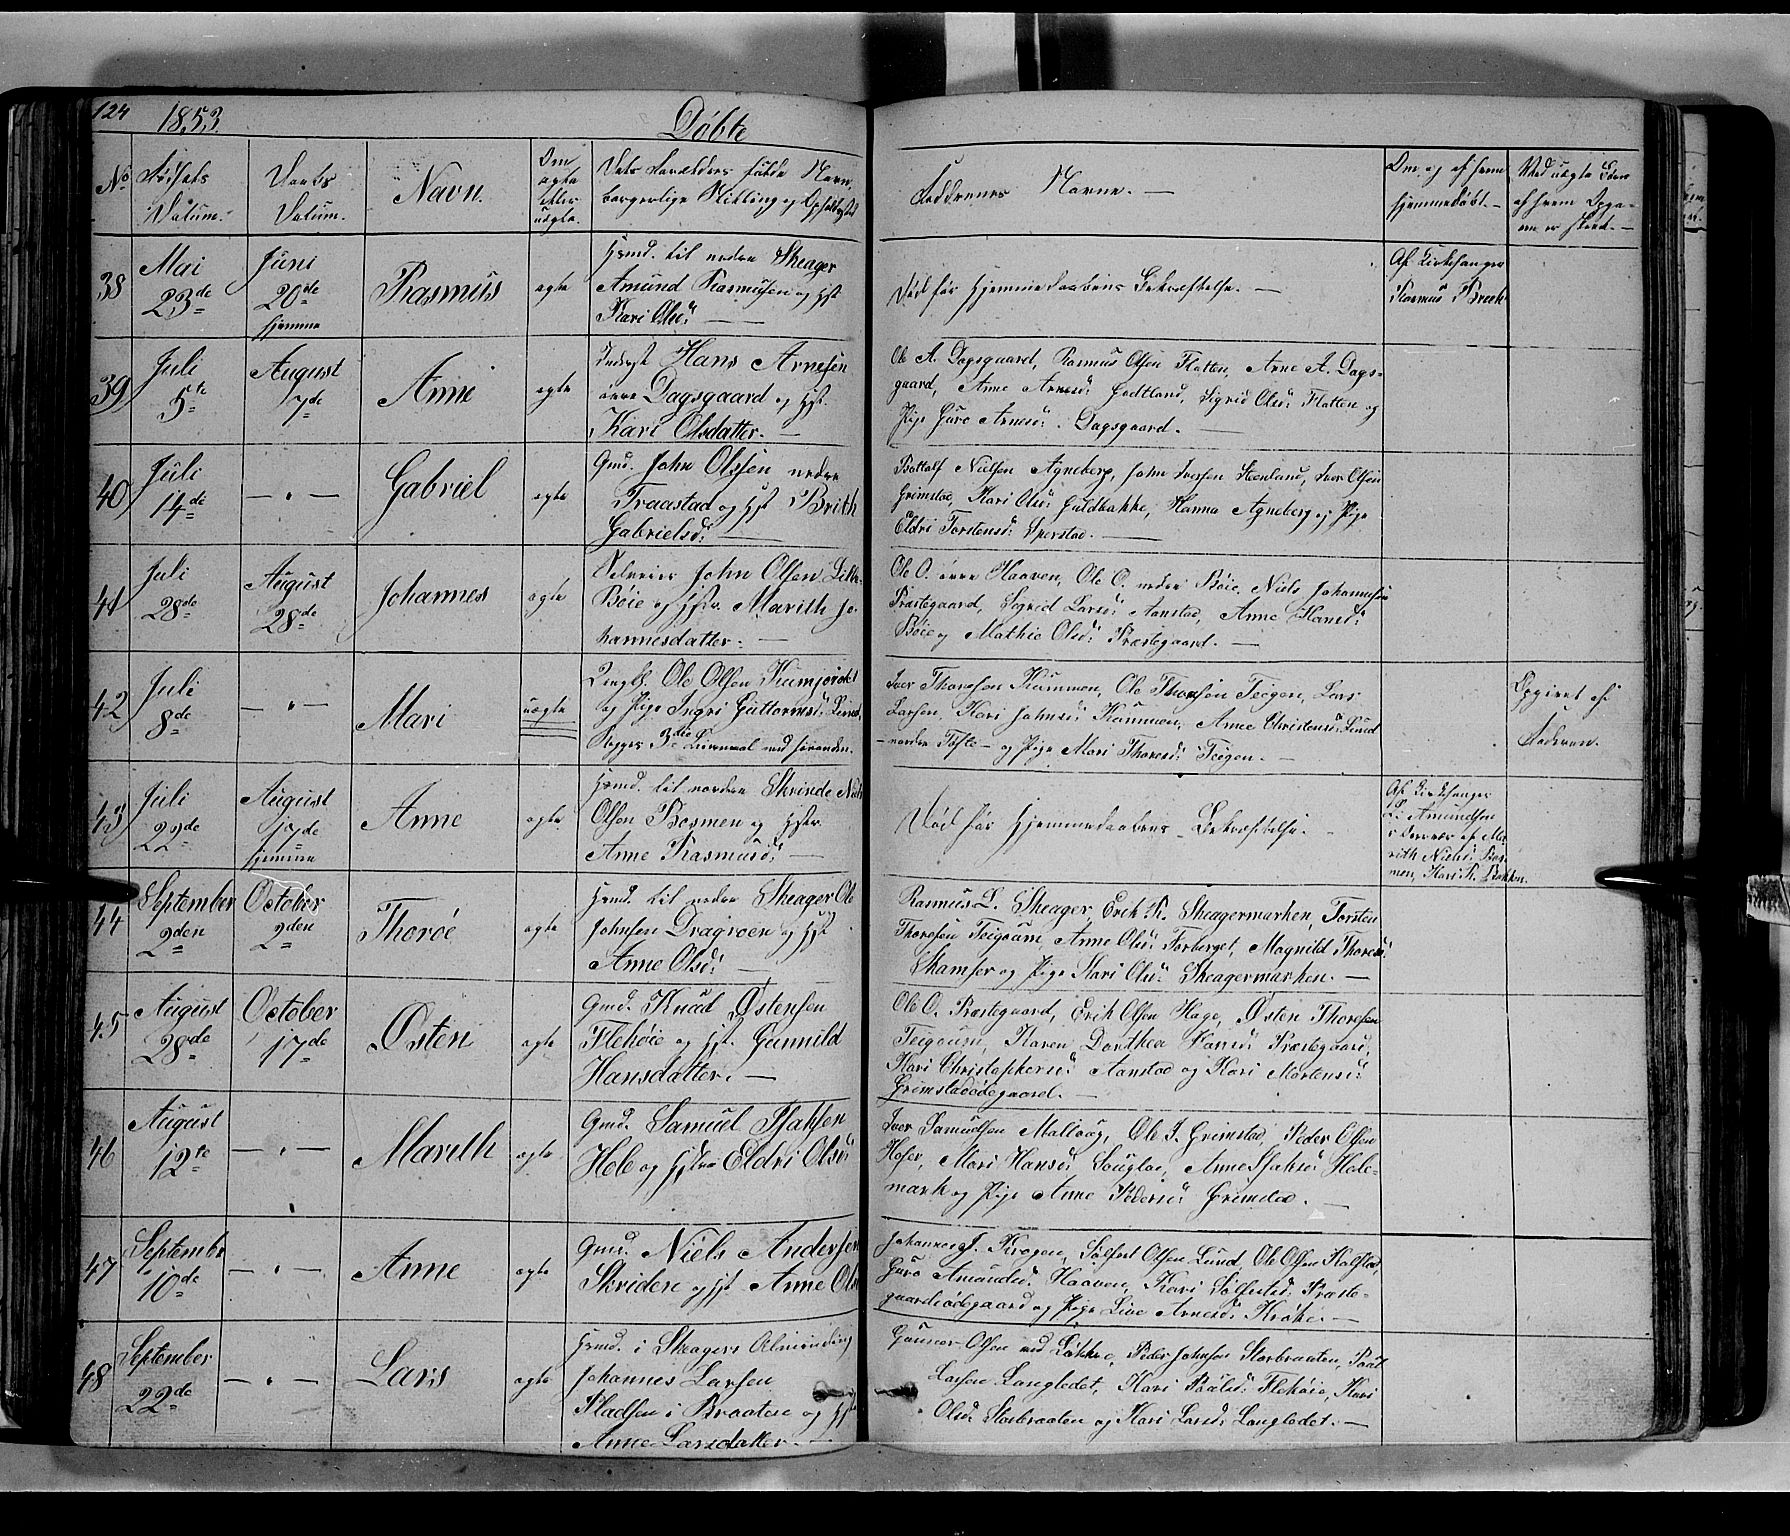 124 1853 Døbte
No Fødsels Datum. Daabs Datum. Navn. Om ægte eller uægte. Forældres fulde Navn, borgerlige Stilling og Opholdssted
Faddernes Navne. — Om og af hvem hjemmedøbt. — Ved uægte af hvem Opga-
38 Mai 23de Juni 20de hjemme Rasmus ægte
Huusmd. til nedre Skeager
Amund Rasmussen og Hst.
Kari Olsd: —
Død før Hjemmedaabens Bekræftelse. —
Af Kirkesanger
Rasmus Bræk
39 Juli 5te August 7de Anne ægte
Inderst Hans Arnesen
øvre Dagsgaard og Hst.
Kari Olsdatter. —
Ole A. Dagsgaard, Rasmus Olsen Flatten, Arne A. Dags-
gaard, Anne Arnesd: Godtland, Sigrid Olsd: Flatten og
Pige Guro Arnesd: Dagsgaard. —
40 Juli 14de — " — Gabriel ægte
Gmd. John Olssen nedre
Traastad og Hst Brith
Gabrielsd: —
Bottolf Nielsen Agneberg, John Iversen Steenland, Iver Olsen
Grimstad, Kari Olsd: Guldbakke, Hanna Agneberg og Pige
Eldri Torstensd: Sperstad. —
41 Juli 28de August 28de Johannes ægte
Selveier John Olsen Lille-
Bøie og Hstr. Marith Jo-
hannesdatter. —
Ole O. øvre Haaven, Ole O. nedre Bøie, Niels Johannesen
Præstegaard, Sigrid Larsd: Aanstad, Anne Hansd:
Bøie og Mathie Olsd: Præstegaard. —
42 Juli 8de — " — Mari uægte
Ungk. Ole Olsen
og Pige Ingri Guttormsd: Lund,
Begges 3die Leiermaal
Iver Thoresen Kummen, Ole Thoresen Teigen, Lars
Larsen, Kari Johnsd: Kummen, Anne Christensd: Lund
nordre Tofte — og Pige Mari Thoresd: Teigen. —
Opgivet af
Moderen.
43 Juli 22de August 17de hjemme Anne ægte
Huusmd. til nordre Skrinde Niels
Olsen Bosmen og Hstr.
Anne Rasmusd: —
Død før Hjemmedaabens Bekræftelse. —
Af Kirkesanger
L. Amundsen
i Nærvær af Ma-
rith Nielsd: Bos-
men, Kari R. Bakken.
44 September 2den October 2den Thorøe ægte
Huusmd. til nedre Skeager Ole
Johnsen Dragvoen og Hst
Anne Olsd: —
Rasmus L. Skeager, Erik R. Skeagermarken, Torsten
Thoresen Teigoum, Anne Olsd: Forberget, Magnild Thoresd:
og Pige Kari Olsd: Skeagermarken. —
45 August 28de October 17de Østen ægte
Gmd. Knud Østensen
Flekøie og Hst. Gunnild
Hansdatter. —
Ole O. Præstegaard, Erik Olsen Hage, Østen Thoresen
Teigoum, Karen Dorthea Præstegaard,
Kari Christophersd: Aanstad og Kari Mortensd:
Grimstadødegaard. —
46 August 12te — " — Marith ægte
Gmd. Samuel Isaksen
Hole og Hstr Eldri Olsd:
Iver Samuelsen Mallaag, Ole I. Grimstad, Peder Olsen
Mari Hansd: Anne Isaksd: Hole-
mark og Pige Anne Pedersd: Grimstad. —
47 September 10de — " — Anne ægte
Gmd. Niels Andersen
Skriden og Hst Anne Olsd
Johannes J. Krogen, Sølfest Olsen Lund, Ole Olsen Kalstad,
Guro Amundsd: Haaven, Kari Sølfestsd: Præste-
gaardsødegaard og Pige Live Arnesd: Krøke. —
48 September 22de — " — Lars ægte
Huusmd. i Skeagers Almending
Johannes Larsen
Pladsen i Braaten og Hst
Anne Larsdatter. —
Gunnar Olsen ved Løkke, Peder Johnsen Storbraaten, Paal
Larsen Langledet, Kari Paalsd: Flekøie, Kari
Olsd: Storbraaten og Kari Larsd: Langledet. —